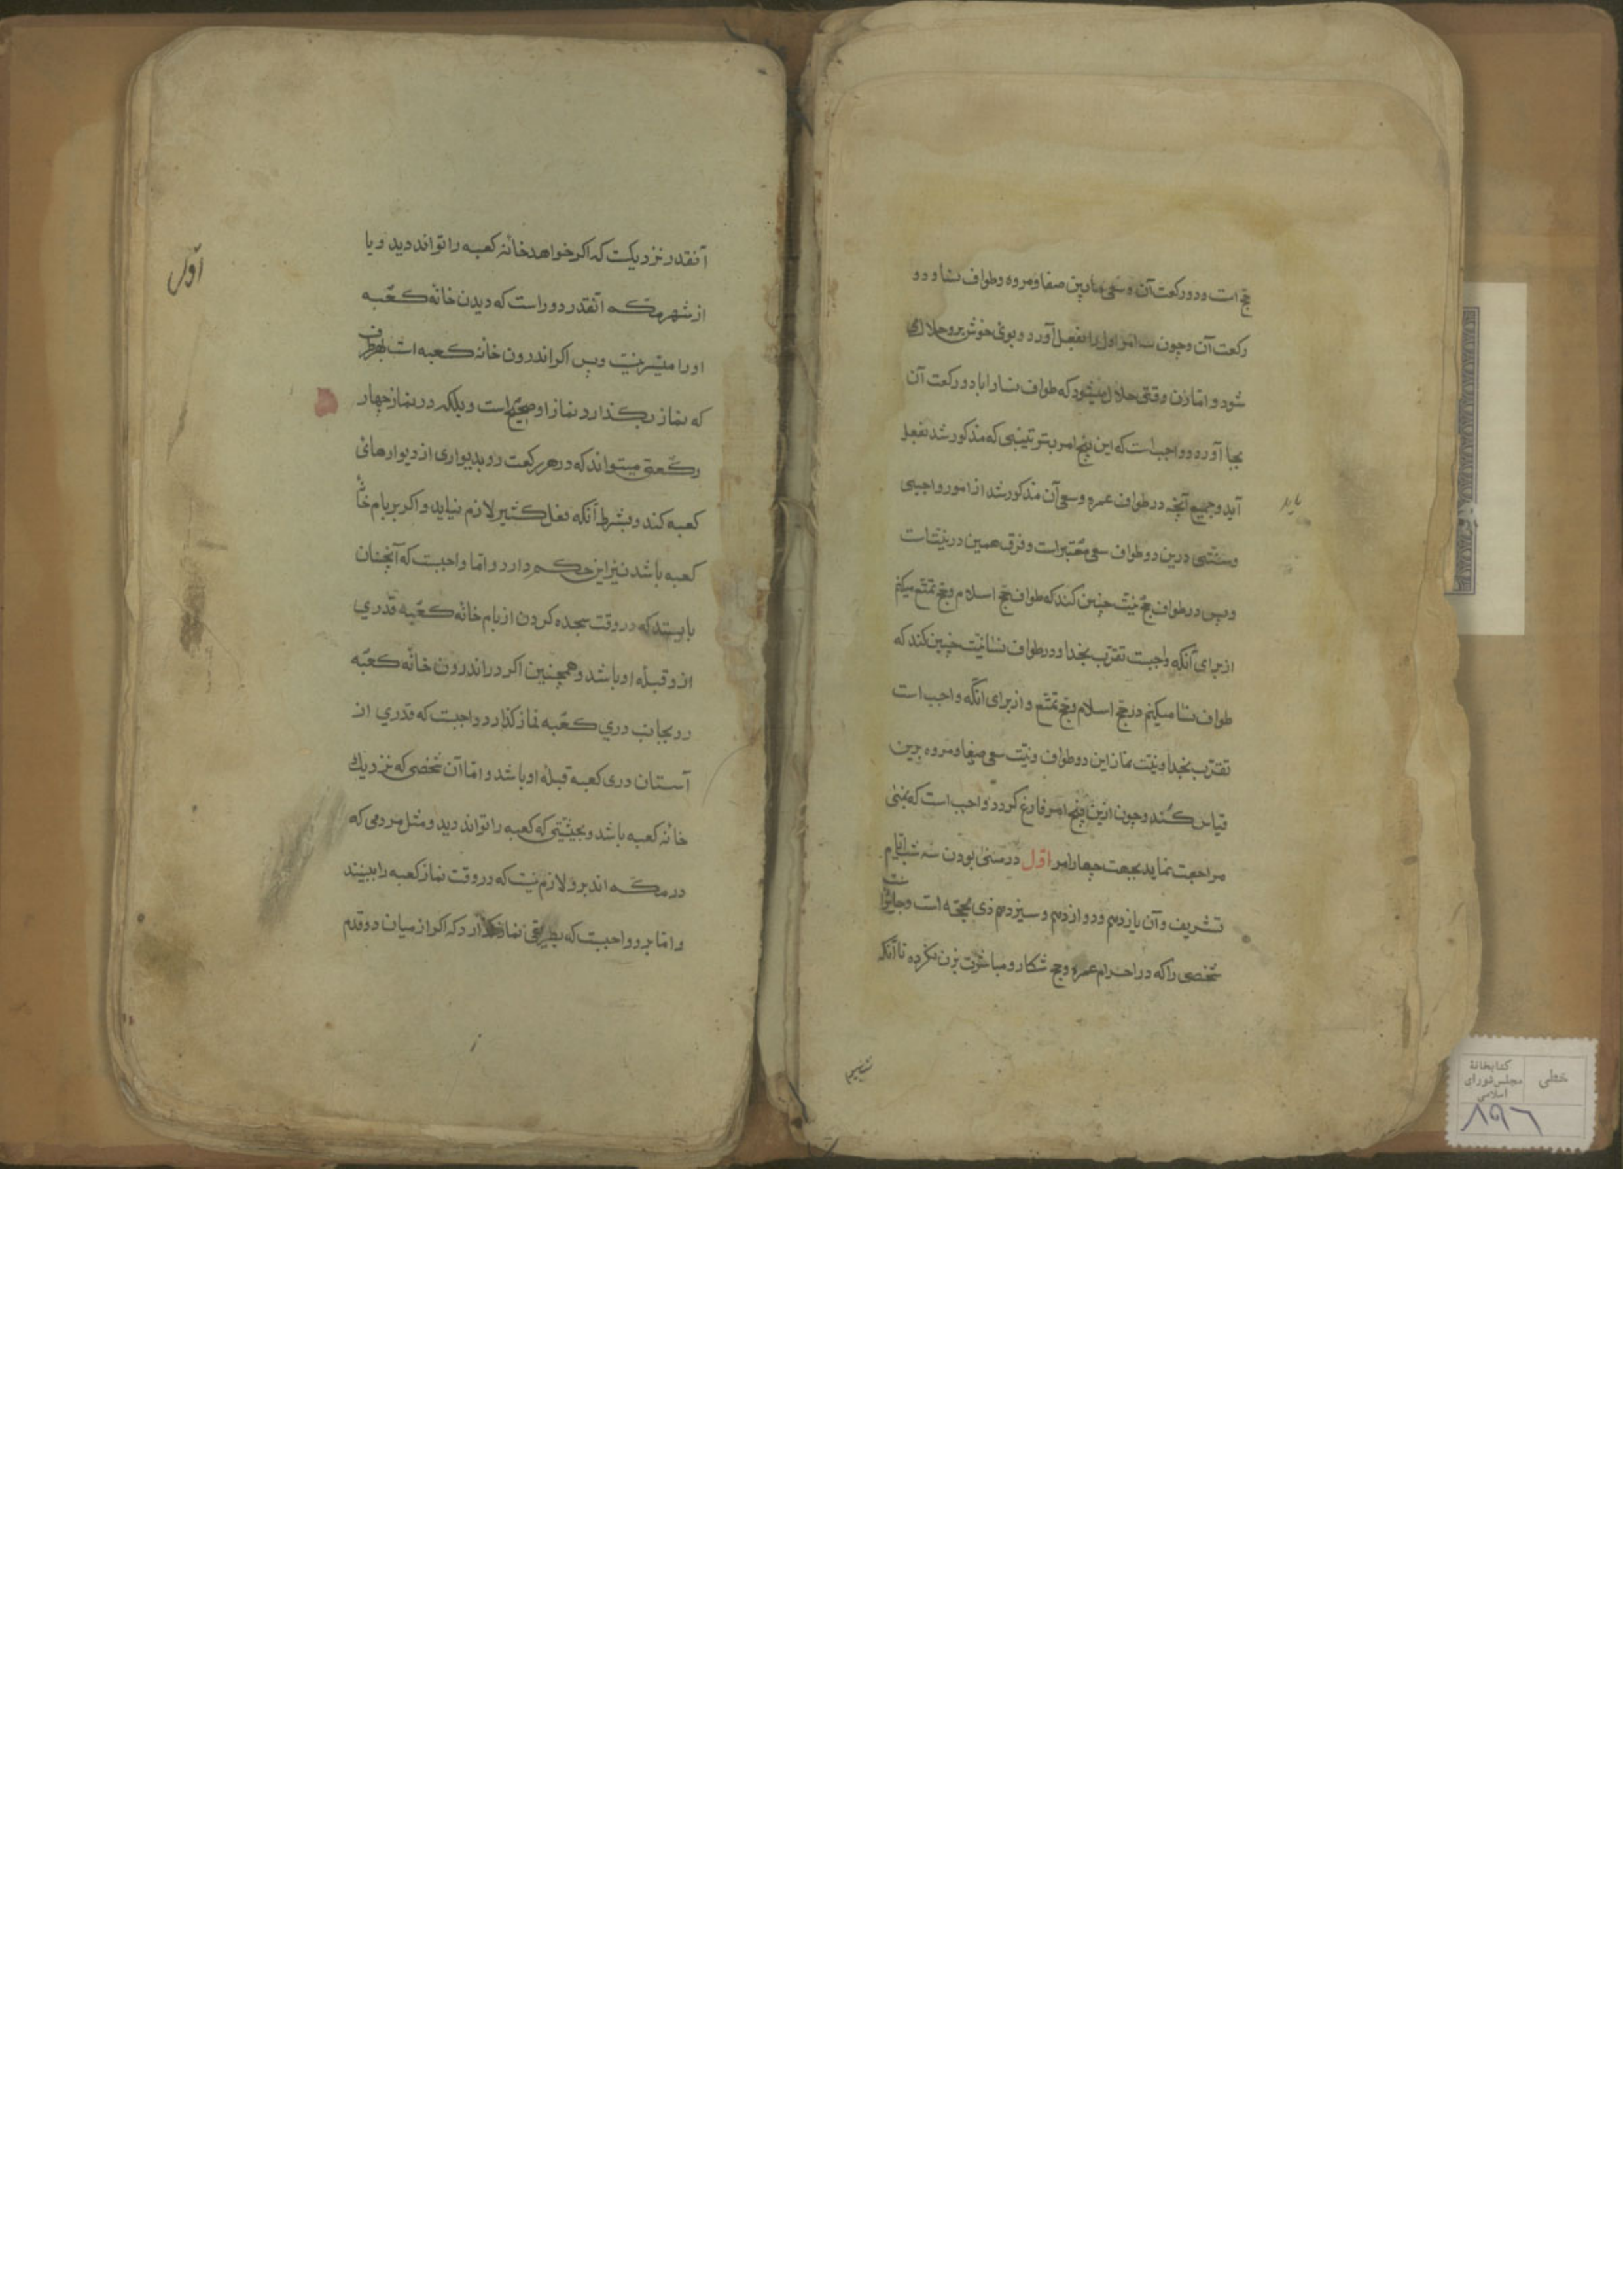 حج است و دو رکعت آن و سعی مابین صفا و مروه و طواف نسا و دو
رکعت آن و چون سه امر اول را بفعل آورد و بوی خوش برو حلال می
شود و اما زن وقتی حلال میشود که طواف نسا را با دو رکعت آن
بجا آورد و واجب است که این پنج امر بترتیبی که مذکور شد بفعل
آید و جمیع آنچه در طواف عمره و سعی آن مذکور شد از امور واجبی
و سنتی درین دو طواف سعی معتبر است و فرق همین در نیت است
و پس در طواف حج نیت چنین کند که طواف حج اسلام و حج تمتع میکنم
از برای آنکه واجبست تقرب بخدا و در طواف نسا نیت چنین کند که
طواف نسا میکنم در حج اسلام و حج تمتع و از برای آنکه واجب است
تقرب بخدا و نیت نماز این دو طواف و نیت سعی صفا و مروه برین
قیاس کند و چون ازین پنج امر فارغ کردد واجب است که بمنی
مراجعت نماید بجهت چهار امر اول در منی بودن سه شب ایام
تشریف و آن یازدهم و دوازدهم و سیزدهم ذی حجه است و جایز
شخصی را که در احرام عمره و حج شکار و مباشرت بزن نکرده تا آنکه
خطی
کتابخانهٔ
مجلس شورای
اسلامی
۸۹۶
اول
آنقدر نزدیکست که اکر خواهد خانهٔ کعبه را تواند دید و یا
از شهر مکه آنقدر دور است که دیدن خانهٔ کعبه
او را میسر نیست و پس اکر اندرون خانهٔ کعبه است بهر طرف
که نماز بکذارد نماز او صحیح است و بلکه در نماز چهار
رکعتی میتواند که در هر رکعت رو بدیواری از دیوارهای
کعبه کند و بشرط آنکه فعل کثیر لازم نیاید و اکر بر بام خانهٔ
کعبه باشد نیز این حکم دارد و اما واجبست که آنچنان
بایستد که در وقت سجده کردن از بام خانهٔ کعبه قدری
از و قبلهٔ او باشد و همچنین اکر در اندرون خانهٔ کعبه
رو بجانب دری کعبه نماز کذارد واجبست که قدری از
آستان دری کعبه قبلهٔ او باشد و اما آن شخصی که نزدیک
خانهٔ کعبه باشد و بحیثیتی که کعبه را تواند دید و مثل مردمی که
در مکه اند برو لازم نیست که در وقت نماز کعبه را ببینند
و اما برو واجبست که بطریقی نماز کذارد که اکر از میان دو قدم